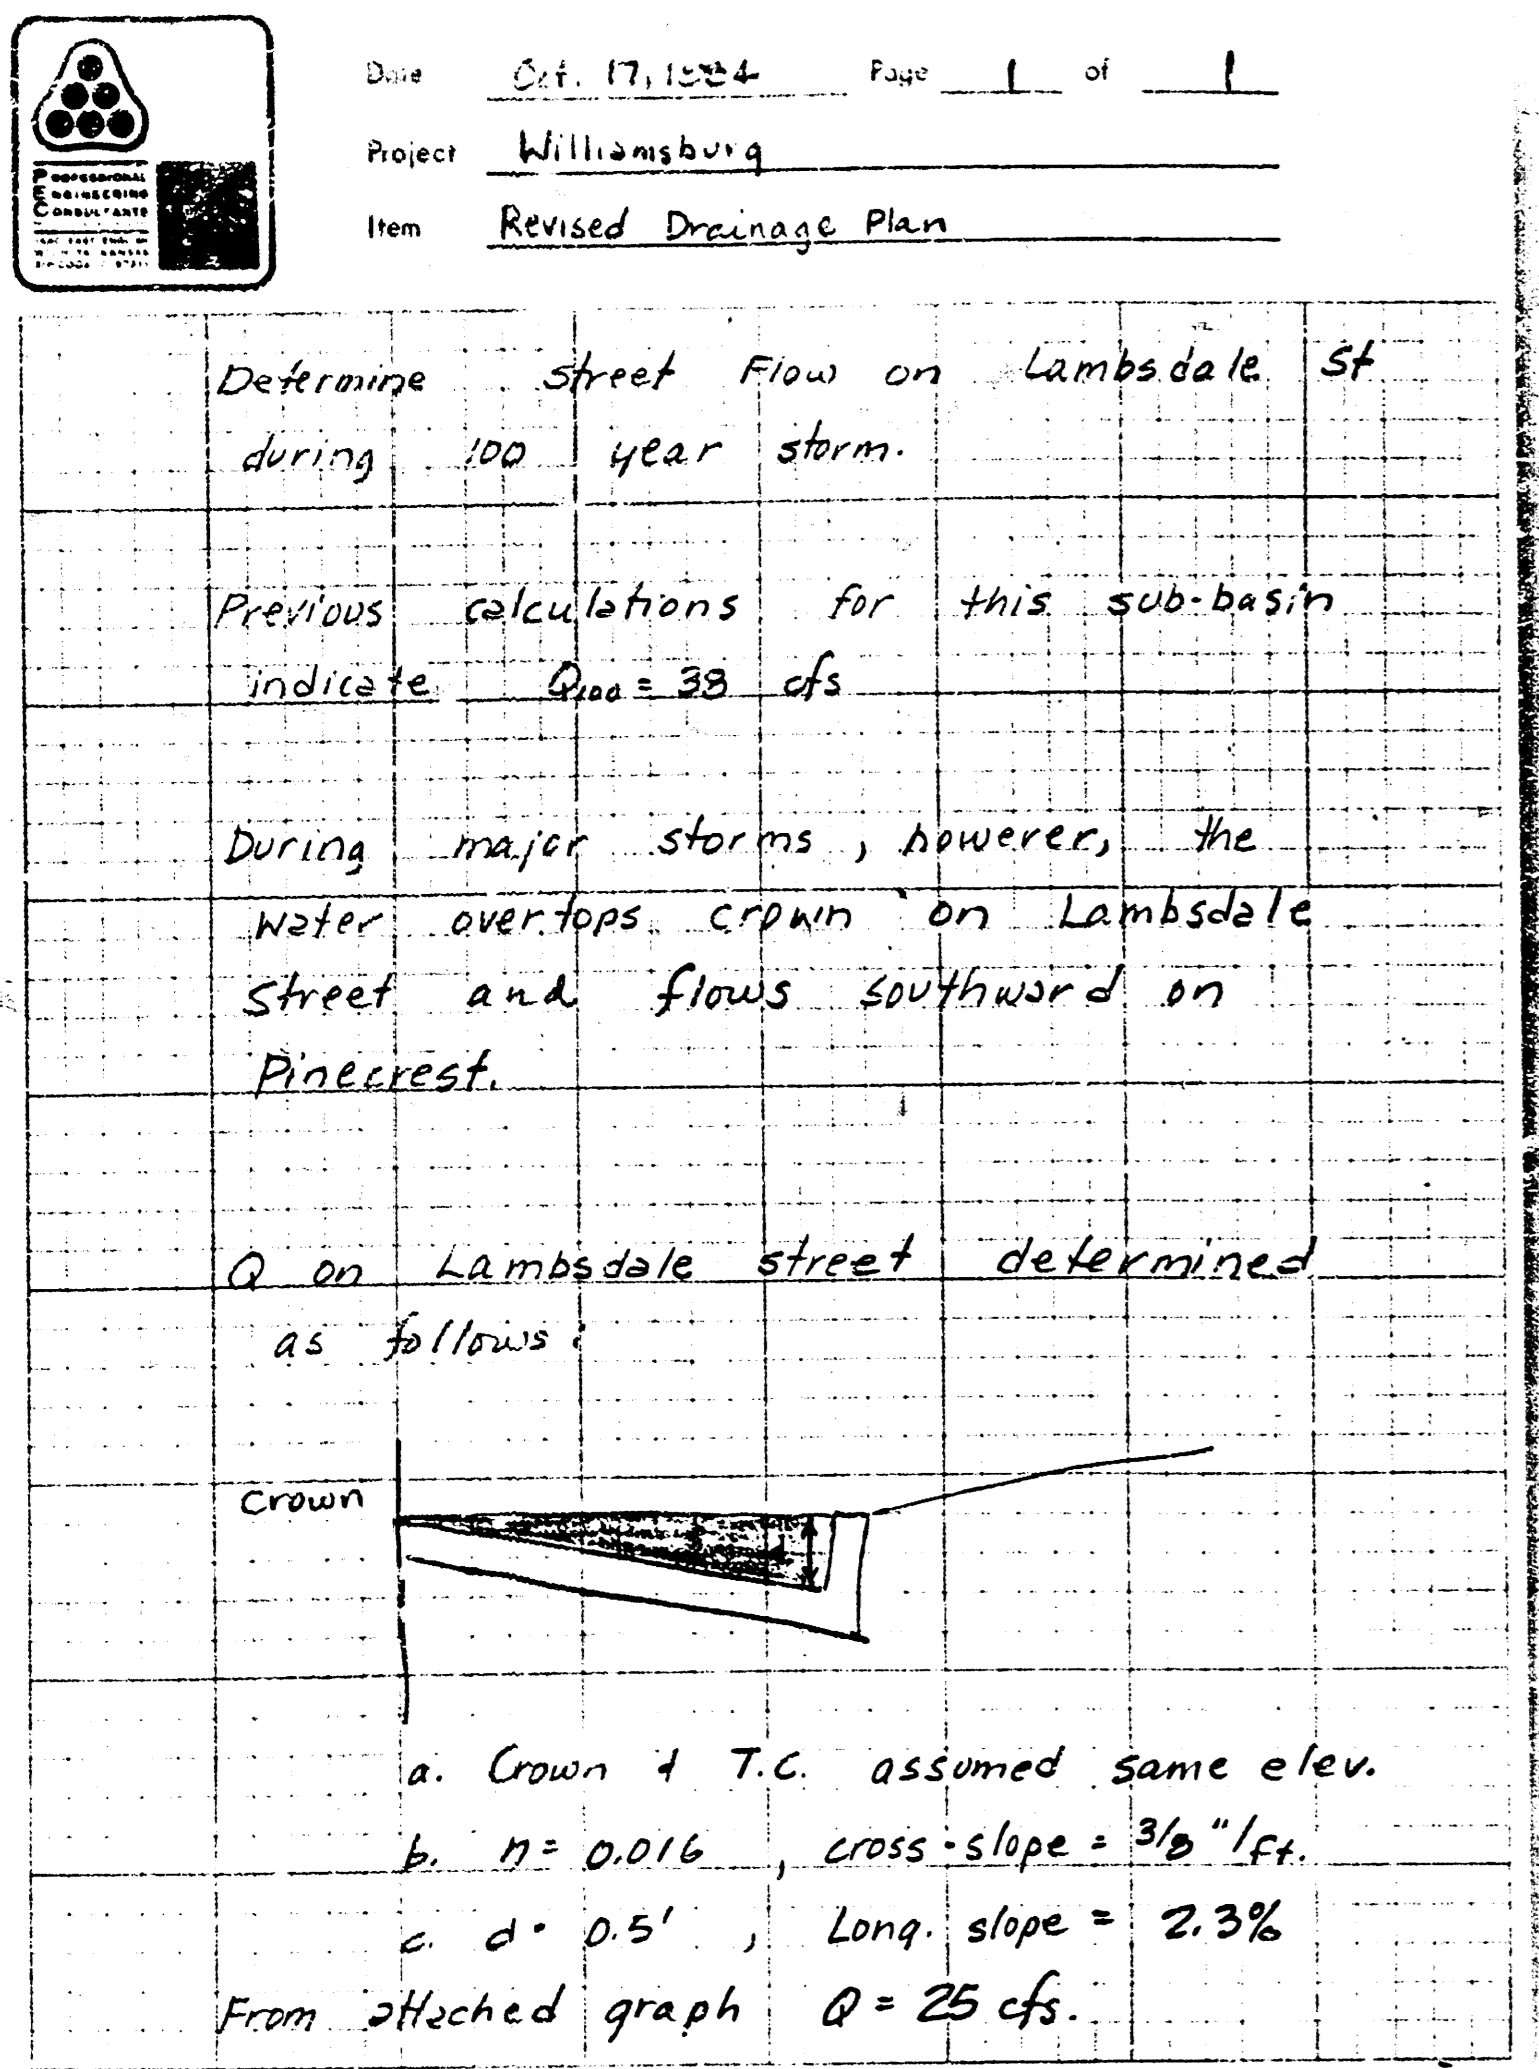 Date Oct. 17, 1984 Page 1 of 1
Project Williamsburg
Item Revised Drainage Plan
PROFESSIONAL
ENGINEERING
CONSULTANTS
WICHITA KANSAS
Determine street Flow on Lambsdale St
during 100 year storm.
Previous calculations for this sub-basin
indicate Q100 = 38 cfs
During major storms, however, the
water overtops crown on Lambsdale
street and flows southward on
Pinecrest.
Q on Lambsdale street determined
as follows:
Crown
a. Crown & T.C. assumed same elev.
b. n = 0.016, cross-slope = 3/8"/ft.
c. d = 0.5', Long. slope = 2.3%
From attached graph Q = 25 cfs.